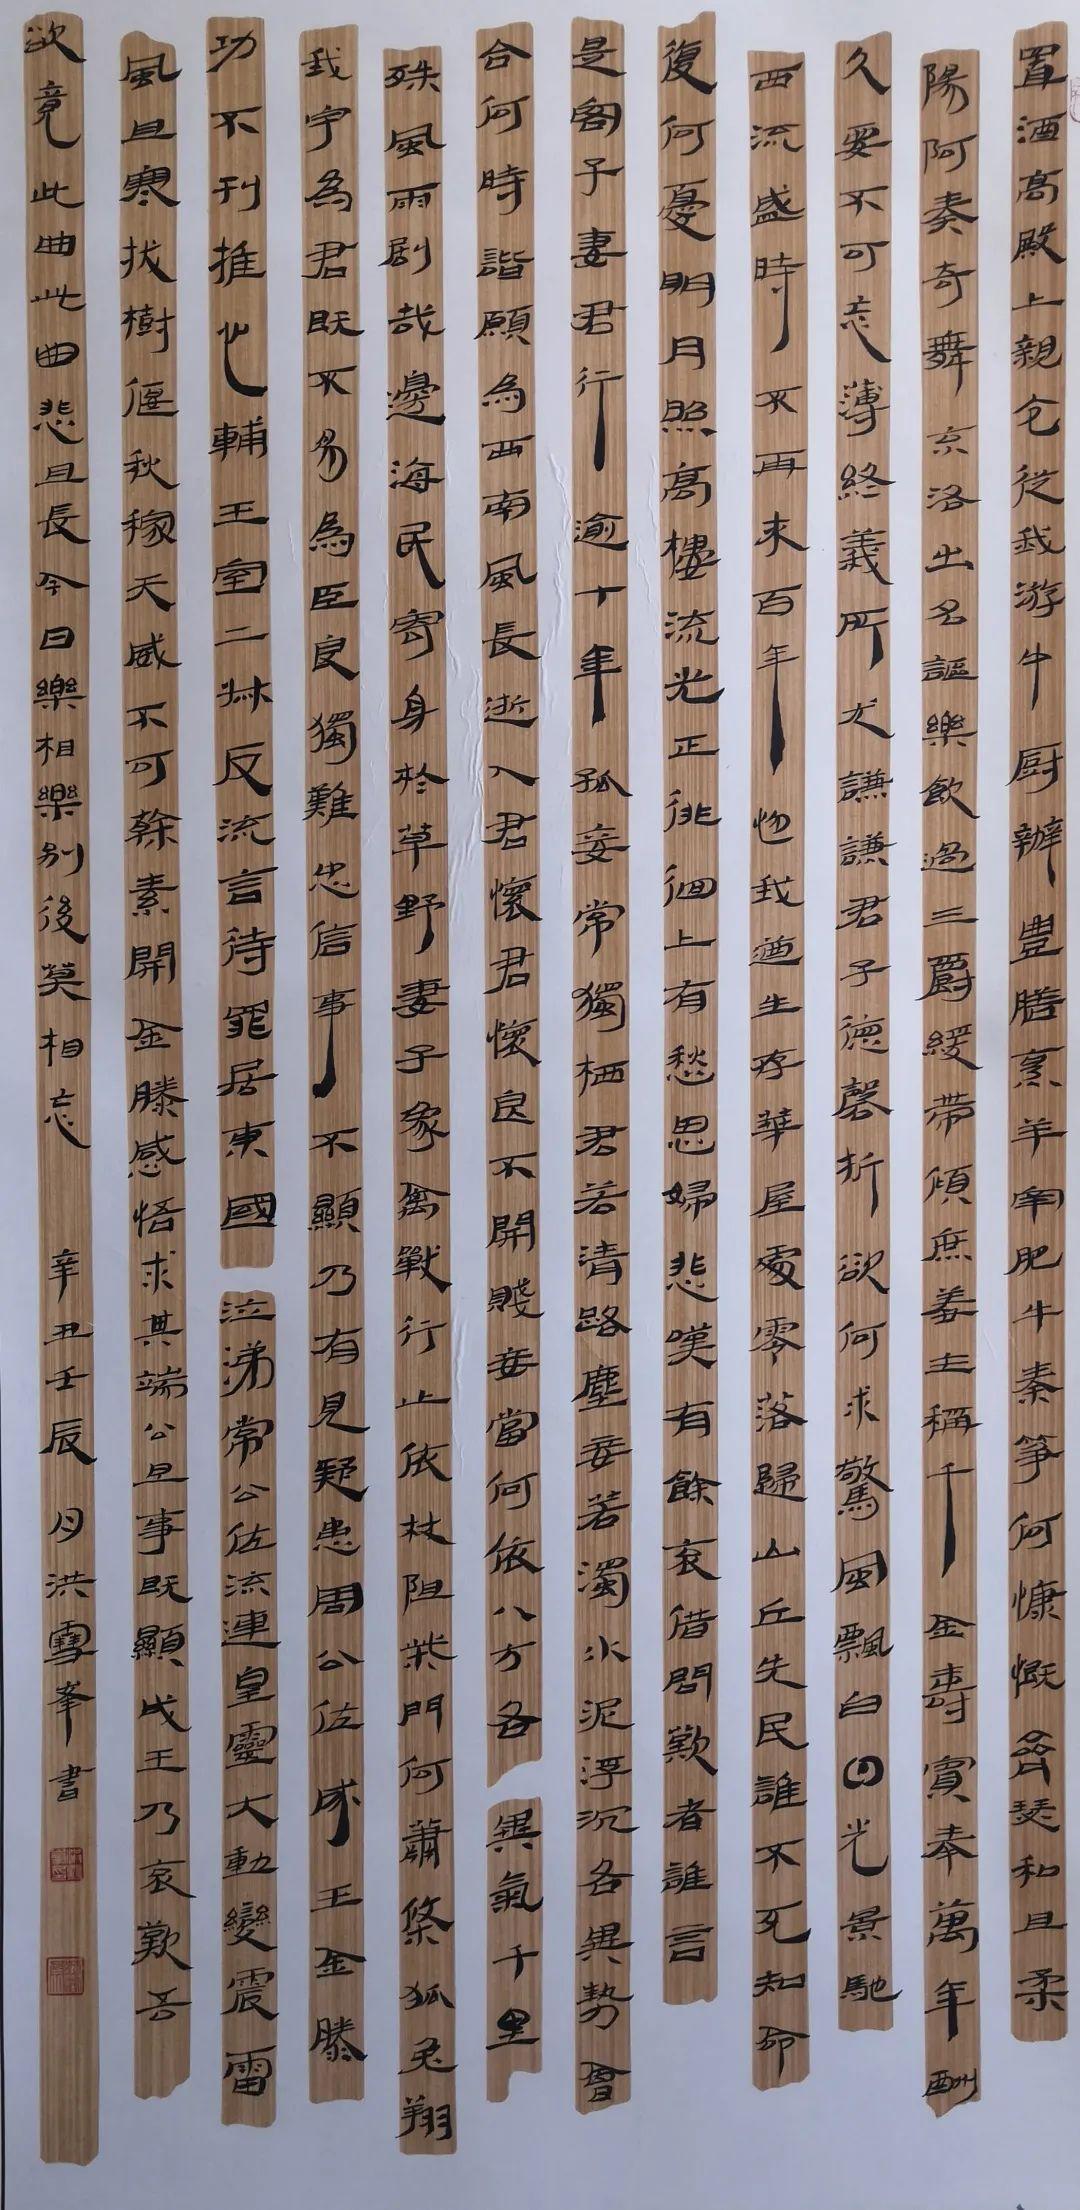 置酒高殿上親仒從我游中廚辦豊膳烹羊宰肥牛秦箏何慷慨齊瑟和且柔
陽阿奏奇舞京洛出名謳樂飲過三爵緩帶傾庶羞主稱千金壽賓奉萬年酬
久要不可忘薄終義所尤謙謙君子德磬折欲何求驚風飄白日光景馳
西流盛時不再來百年忽我遒生存華屋處零落歸山丘先民誰不死知命
復何憂明月照高樓流光正徘徊上有愁思婦悲嘆有餘哀借問歎者誰言
是客子妻君行逾十年孤妾常獨栖君若清路塵妾若濁水泥浮沉各異勢會
合何時諧願為西南風長逝入君懷君懷良不開賤妾當何依八方各異氣千里
殊風雨劇哉邊海民寄身於草野妻子象禽獸行止依林阻柴門何蕭條狐兔翔
我宇為君既不易為臣良獨難忠信事不顯乃有見疑患周公佐成王金縢
功不刊推心輔王室二叔反流言待罪居東國泣涕常公佐流連皇靈大動變震雷
風且寒拔樹偃秋稼天威不可幹素開金縢感悟求其端公旦事既顯成王乃哀歎吾
欲竟此曲此曲悲且長今日樂相樂別後莫相忘 辛丑壬辰月洪雪峯書